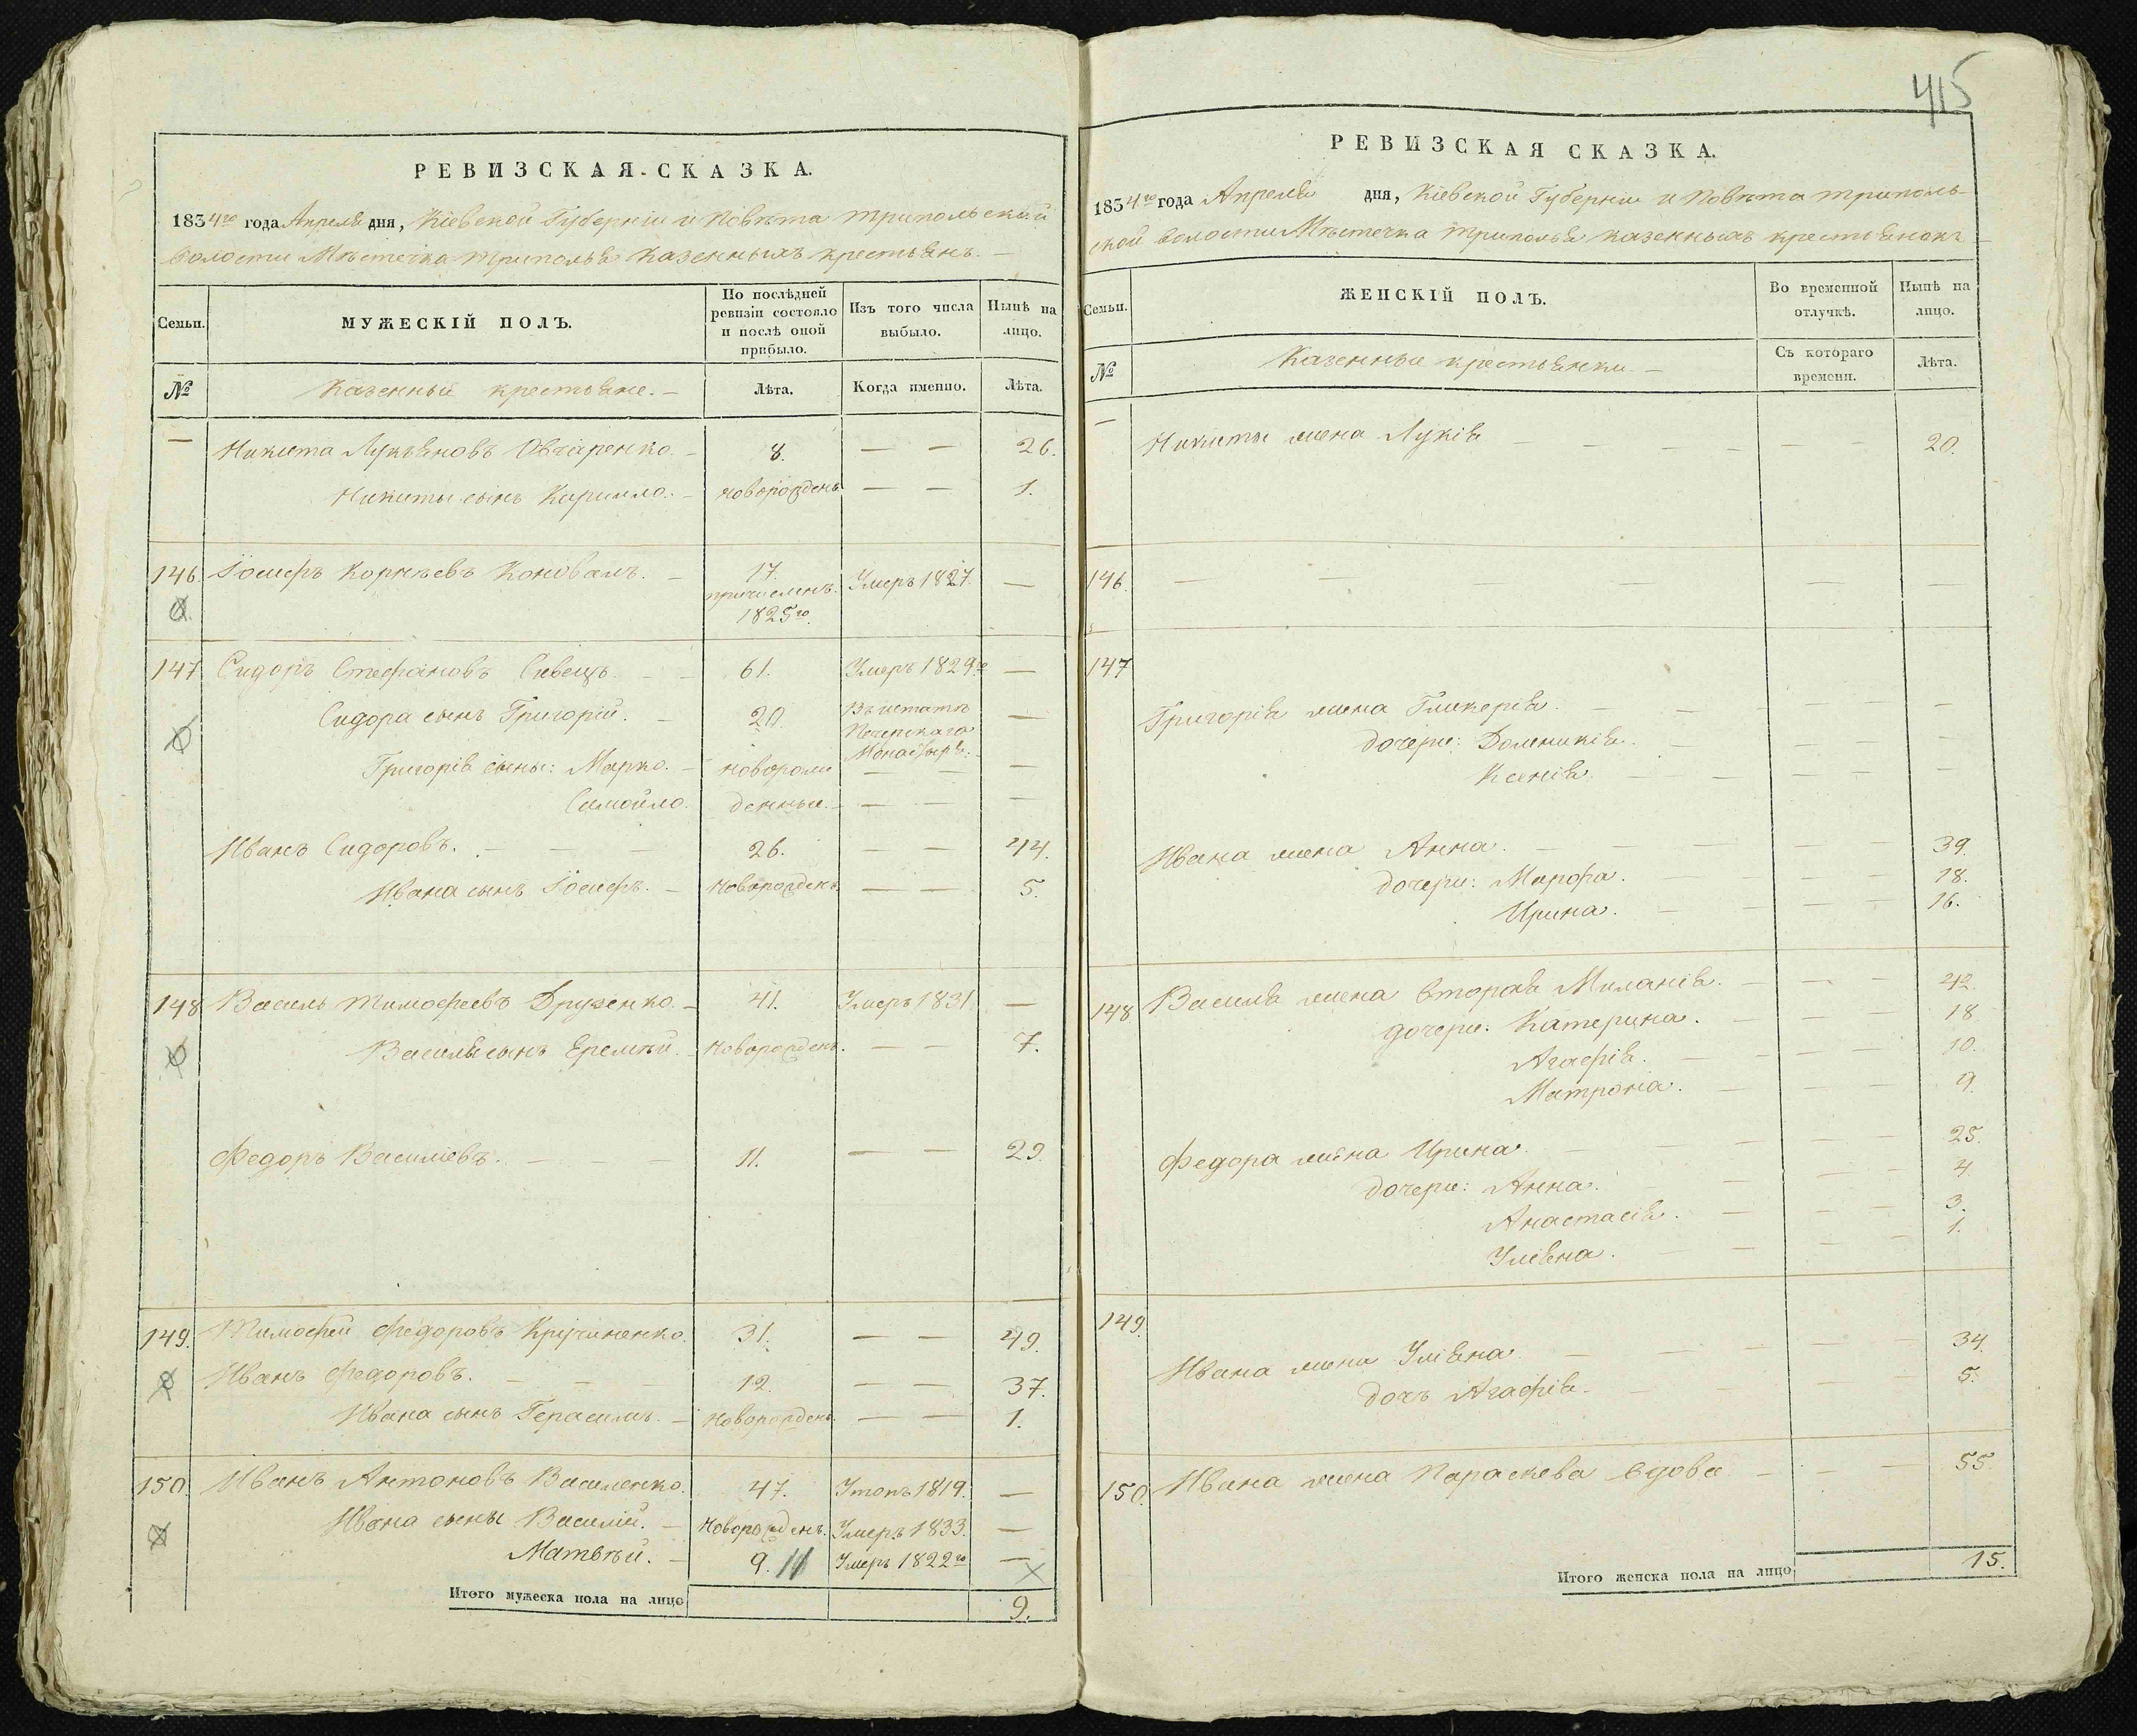 415
РЕВИЗСКАЯ СКАЗКА.
1834го года Апреля дня, Кіевской Губерніи и Повѣта Трипольской
волости Мѣстечка Триполья Казенныхъ крестьянъ. —
Семьи. МУЖЕСКІЙ ПОЛЪ. По послѣдней ревизіи состояло и послѣ оной прибыло. Изъ того числа выбыло. Нынѣ на лицо.
№ Казенные крестьяне. — Лѣта. Когда именно. Лѣта.
— Никита Лукьяновъ Овчаренко. — 8. — — 26.
Никиты сынъ Кирилло. — новорожденъ — — 1.
146. Іосифъ Корнѣевъ Коновалъ. — 17. причисленъ 1825го. Умеръ 1827. —
147 Сидоръ Стефановъ Швецъ. — — 61. Умеръ 1829го —
Сидора сынъ Григорій. — 20. Въ штатѣ Печерскаго Монастыря. —
Григорія сыны: Марко. — новорож — — —
Самойло. денные. — — —
Иванъ Сидоровъ. — — — 26. — — 44.
Ивана сынъ Іосифъ. — Новорожденъ — — 5.
148 Василь Тимофеевъ Друженко. — 41. Умеръ 1831. —
Василя сынъ Еремѣй. — Новорожденъ. — — 7.
Федоръ Василіевъ. — — — 11. — — 29.
149. Тимофей Федоровъ Кручиненко. 31. — — 49.
Иванъ Федоровъ. — — — 12. — — 37.
Ивана сынъ Герасимъ. — Новорожденъ. — — 1.
150. Иванъ Антоновъ Василенко. 47. Утопъ 1819. —
Ивана сыны Василій. — Новорожденъ. Умеръ 1833. —
Матвѣй. — 9. Умеръ 1822го —
Итого мужеска пола на лицо 9.
РЕВИЗСКАЯ СКАЗКА.
1834го года Апреля дня, Кіевской Губерніи и Повѣта Триполь-
ской волости Мѣстечка Триполья казенныхъ крестьянокъ —
Семьи. ЖЕНСКІЙ ПОЛЪ. Во временной отлучкѣ. Нынѣ на лицо.
№ Казенные крестьянки — Съ котораго времени. Лѣта.
— Никиты жена Лукія — — — — — 20.
146. — — — — — —
147
Григорія жена Гликерія. — — — — — —
дочери: Доминикія. — — — —
Ксенія. — — — — —
Ивана жена Анна. — — — — — 39.
дочери: Марфа. — — — — 18.
Ирина. — — — — 16.
148 Василя жена вторая Миланія. — — — 42.
дочери: Катерина. — — — 18
Агафія. — — — — 10.
Матрона. — — — 9.
Федора жена Ирина. — — — — 25.
дочери: Анна. — — — — 4.
Анастасія. — — — 3.
Уліяна. — — — — 1.
149.
Ивана жена Уліяна. — — — — — 34.
дочь Агафія. — — — 5.
150. Ивана жена Параскева вдова — — — 55
Итого женска пола на лицо 15.